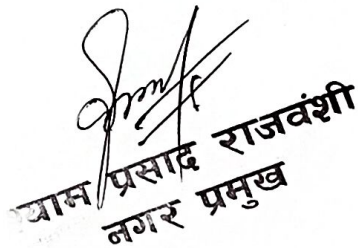 प्रसाद राजवंशी
नगर प्रमुख